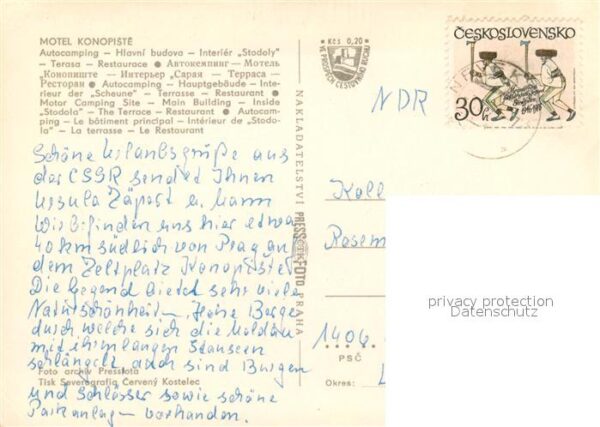 MOTEL KONOPIŠTĚ
Autocamping — Hlavní budova — Interiér „Stodoly"
— Terasa — Restaurace ● Автокемпинг — Мотель
„Конопиште — Интерьер „Сарая — Терраса —
Ресторан ● Autocamping — Hauptgebäude — Inte-
rieur der „Scheune" — Terrasse — Restaurant ●
Motor Camping Site — Main Building — Inside
„Stodola" — The Terrace — Restaurant ● Autocam-
ping — Le bâtiment principal — Intérieur de „Stodo-
la" — La terrasse — Le Restaurant
Schöne Urlaubsgrüße aus
der CSSR sendet Ihnen
Ursula Zäpert u. Mann
Wir befinden uns hier etwa
40 km südlich von Prag auf
dem Zeltplatz Konopiště.
Die Gegend bietet sehr viele
Naturschönheiten. Hohe Berge
durch welche sich die Moldau
mit ihren langen Stauseen
schlängelt, auch sind Burgen
und Schlösser sowie schöne
Parkanlagen vorhanden.
Foto archiv Pressfota
Tisk Severografia Červený Kostelec
NAKLADATELSTVÍ PRESSFOTO PRAHA
Kčs 0,20
VE PROSPĚCH CESTOVNÍHO RUCHU
ČESKOSLOVENSKO
30h
NDR
Koll
Rosem
1406
PSČ
Okres:
privacy protection
Datenschutz